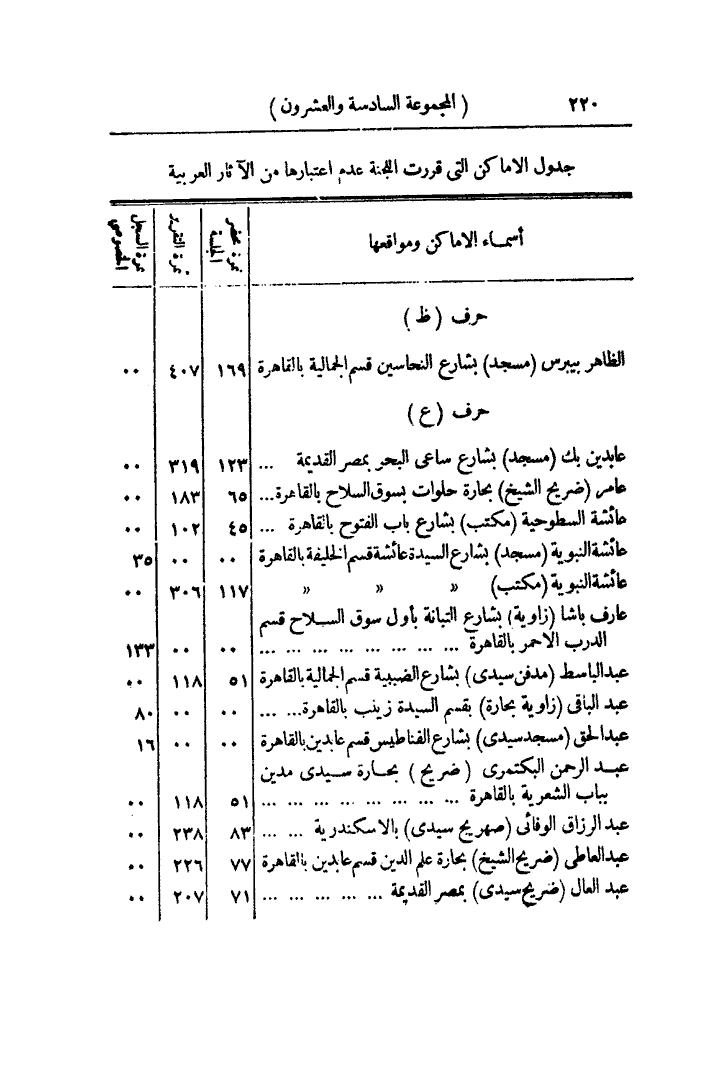 ٢٢٠ ( المجموعة السادسة والعشرون )
جدول الاماكن التى قررت اللجنة عدم اعتبارها من الآثار العربية
أسماء الاماكن ومواقعها نمرة محضر الجلسة نمرة التقرير نمرة السجل الخصوصى
حرف ( ظ )
الظاهر بيبرس (مسجد) بشارع النحاسين قسم الجمالية بالقاهرة ١٦٩ ٤٠٧ ٠٠
حرف ( ع )
عابدين بك (مسجد) بشارع ساعى البحر بمصر القديمة ... ١٢٣ ٣١٩ ٠٠
عامر (ضريح الشيخ) بحارة حلوات بسوق السلاح بالقاهرة... ٦٥ ١٨٣ ٠٠
عائشة السطوحية (مكتب) بشارع باب الفتوح بالقاهرة ... ٤٥ ١٠٢ ٠٠
عائشة النبوية (مسجد) بشارع السيدة عائشة قسم الخليفة بالقاهرة ٠٠ ٠٠ ٣٥
عائشة النبوية (مكتب) » » » ١١٧ ٣٠٦ ٠٠
عارف باشا (زاوية) بشارع التبانة بأول سوق السلاح قسم
الدرب الاحمر بالقاهرة ... ... ... ... ... ... ... ... ٠٠ ٠٠ ١٣٣
عبدالباسط (مدفن سيدى) بشارع الضببية قسم الجمالية بالقاهرة ٥١ ١١٨ ٠٠
عبد الباقى (زاوية بحارة) بقسم السيدة زينب بالقاهرة... ... ٠٠ ٠٠ ٨٠
عبدالحق (مسجد سيدى) بشارع الفناطيس قسم عابدين بالقاهرة ٠٠ ٠٠ ١٦
عبد الرحمن البكتمرى ( ضريح ) بحارة سيدى مدين
بباب الشعرية بالقاهرة ... ... ... ... ... ... ... ... ٥١ ١١٨ ٠٠
عبد الرزاق الوفائى (صهريج سيدى) بالاسكندرية ... ... ٨٣ ٢٣٨ ٠٠
عبدالعاطى (ضريح الشيخ) بحارة علم الدين قسم عابدين بالقاهرة ٧٧ ٢٢٦ ٠٠
عبد العال (ضريح سيدى) بمصر القديمة ... ... ... ... ... ٧١ ٢٠٧ ٠٠